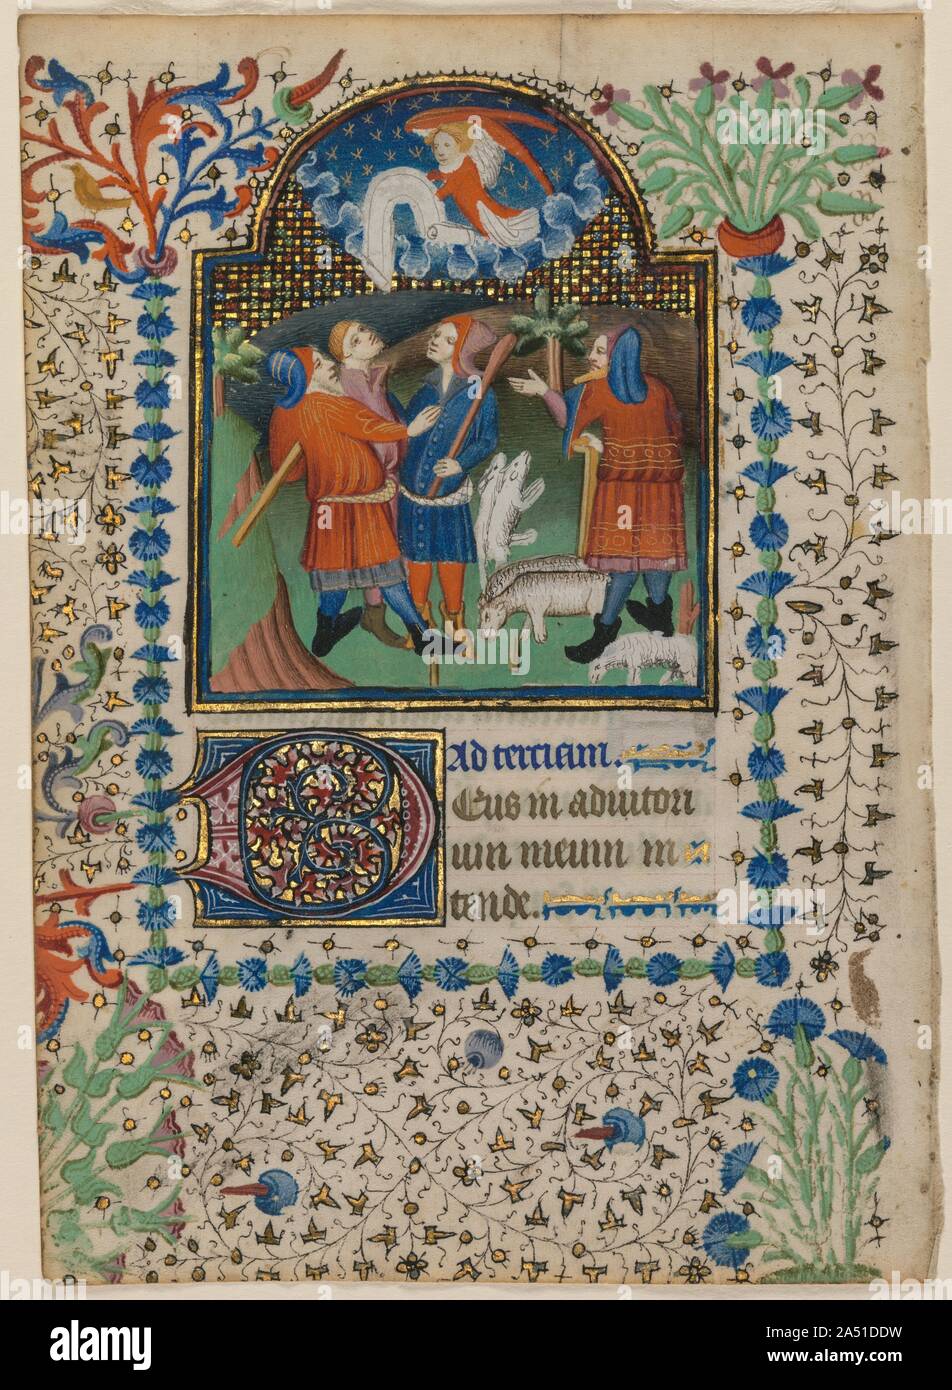 Ad terciam.
DEus in adiutori
um meum in
tende.
alamy
Image ID: 2A51DDW
www.alamy.com